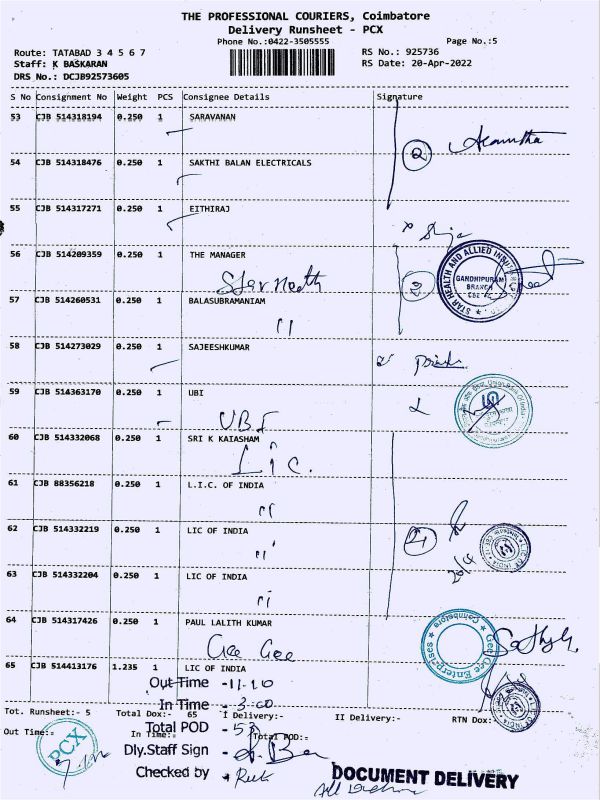 THE PROFESSIONAL COURIERS, Coimbatore
Delivery Runsheet - PCX
Phone No.:0422-3505555 Page No.:5
Route: TATABAD 3 4 5 6 7 RS No.: 925736
Staff: K BASKARAN RS Date: 20-Apr-2022
DRS No.: DCJB92573605
S No Consignment No Weight PCS Consignee Details Signature
53 CJB 514318194 0.250 1 SARAVANAN
2
54 CJB 514318476 0.250 1 SAKTHI BALAN ELECTRICALS
55 CJB 514317271 0.250 1 EITHIRAJ
56 CJB 514209359 0.250 1 THE MANAGER
Star Health
STAR HEALTH AND ALLIED INSU
GANDHIPURAM
BRANCH
CBE
57 CJB 514260531 0.250 1 BALASUBRAMANIAM
"
58 CJB 514273029 0.250 1 SAJEESHKUMAR
59 CJB 514363170 0.250 1 UBI
UBI
60 CJB 514332068 0.250 1 SRI K KAIASHAM
L i c.
61 CJB 88356218 0.250 1 L.I.C. OF INDIA
"
62 CJB 514332219 0.250 1 LIC OF INDIA
"
4
20/4
63 CJB 514332204 0.250 1 LIC OF INDIA
"
64 CJB 514317426 0.250 1 PAUL LALITH KUMAR
Gee Gee
Gee Gee Enterprises Coimbatore
65 CJB 514413176 1.235 1 LIC OF INDIA
Out Time -11-10
In Time - 3-00
Tot. Runsheet:- 5 Total Dox:- 65 I Delivery:- II Delivery:- RTN Dox:-
Total POD
Out Time:- In Time:- Total POD:-
PCX
Dly.Staff Sign -
Checked by
DOCUMENT DELIVERY